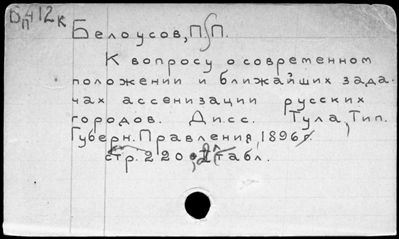 Белоусов, П П.
К вопросу о современном
положении и ближайших зада-
чах ассенизации русских
городов. Дисс. Тула, Тип.
Губерн. Правления, 1896 г.
стр. 220, табл.